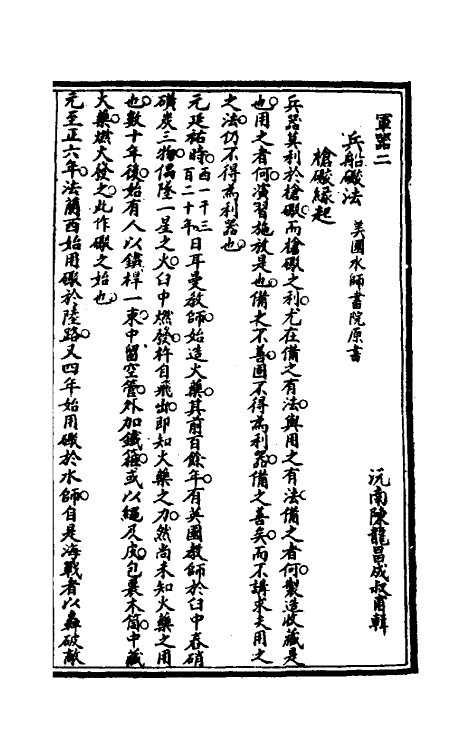 軍器二
沅南陳龍昌成叔甫輯
兵船礮法 美國水師書院原書
槍礮緣起
兵器莫利於槍礮而槍礮之利尤在備之有法與用之有法備之者何製造收藏是
也用之者何演習施放是也備夫不善固不得為利器備之善矣而不講求夫用之
之法仍不得為利器也
元延祐時西一千三百二十年日耳曼教師始造火藥其前百餘年有英國教師於臼中舂硝
磺炭三物偶墜一星之火臼中燃發杵自飛出即知火藥之力然尚未知火藥之用
也數十年後始有人以鐵桿一束中留空管外加鐵箍或以繩及皮包裹木筒中藏
火藥燃火發之此作礮之始也
元至正六年法蘭西始用礮於陸路又四年始用礮於水師自是海戰者以轟破敵